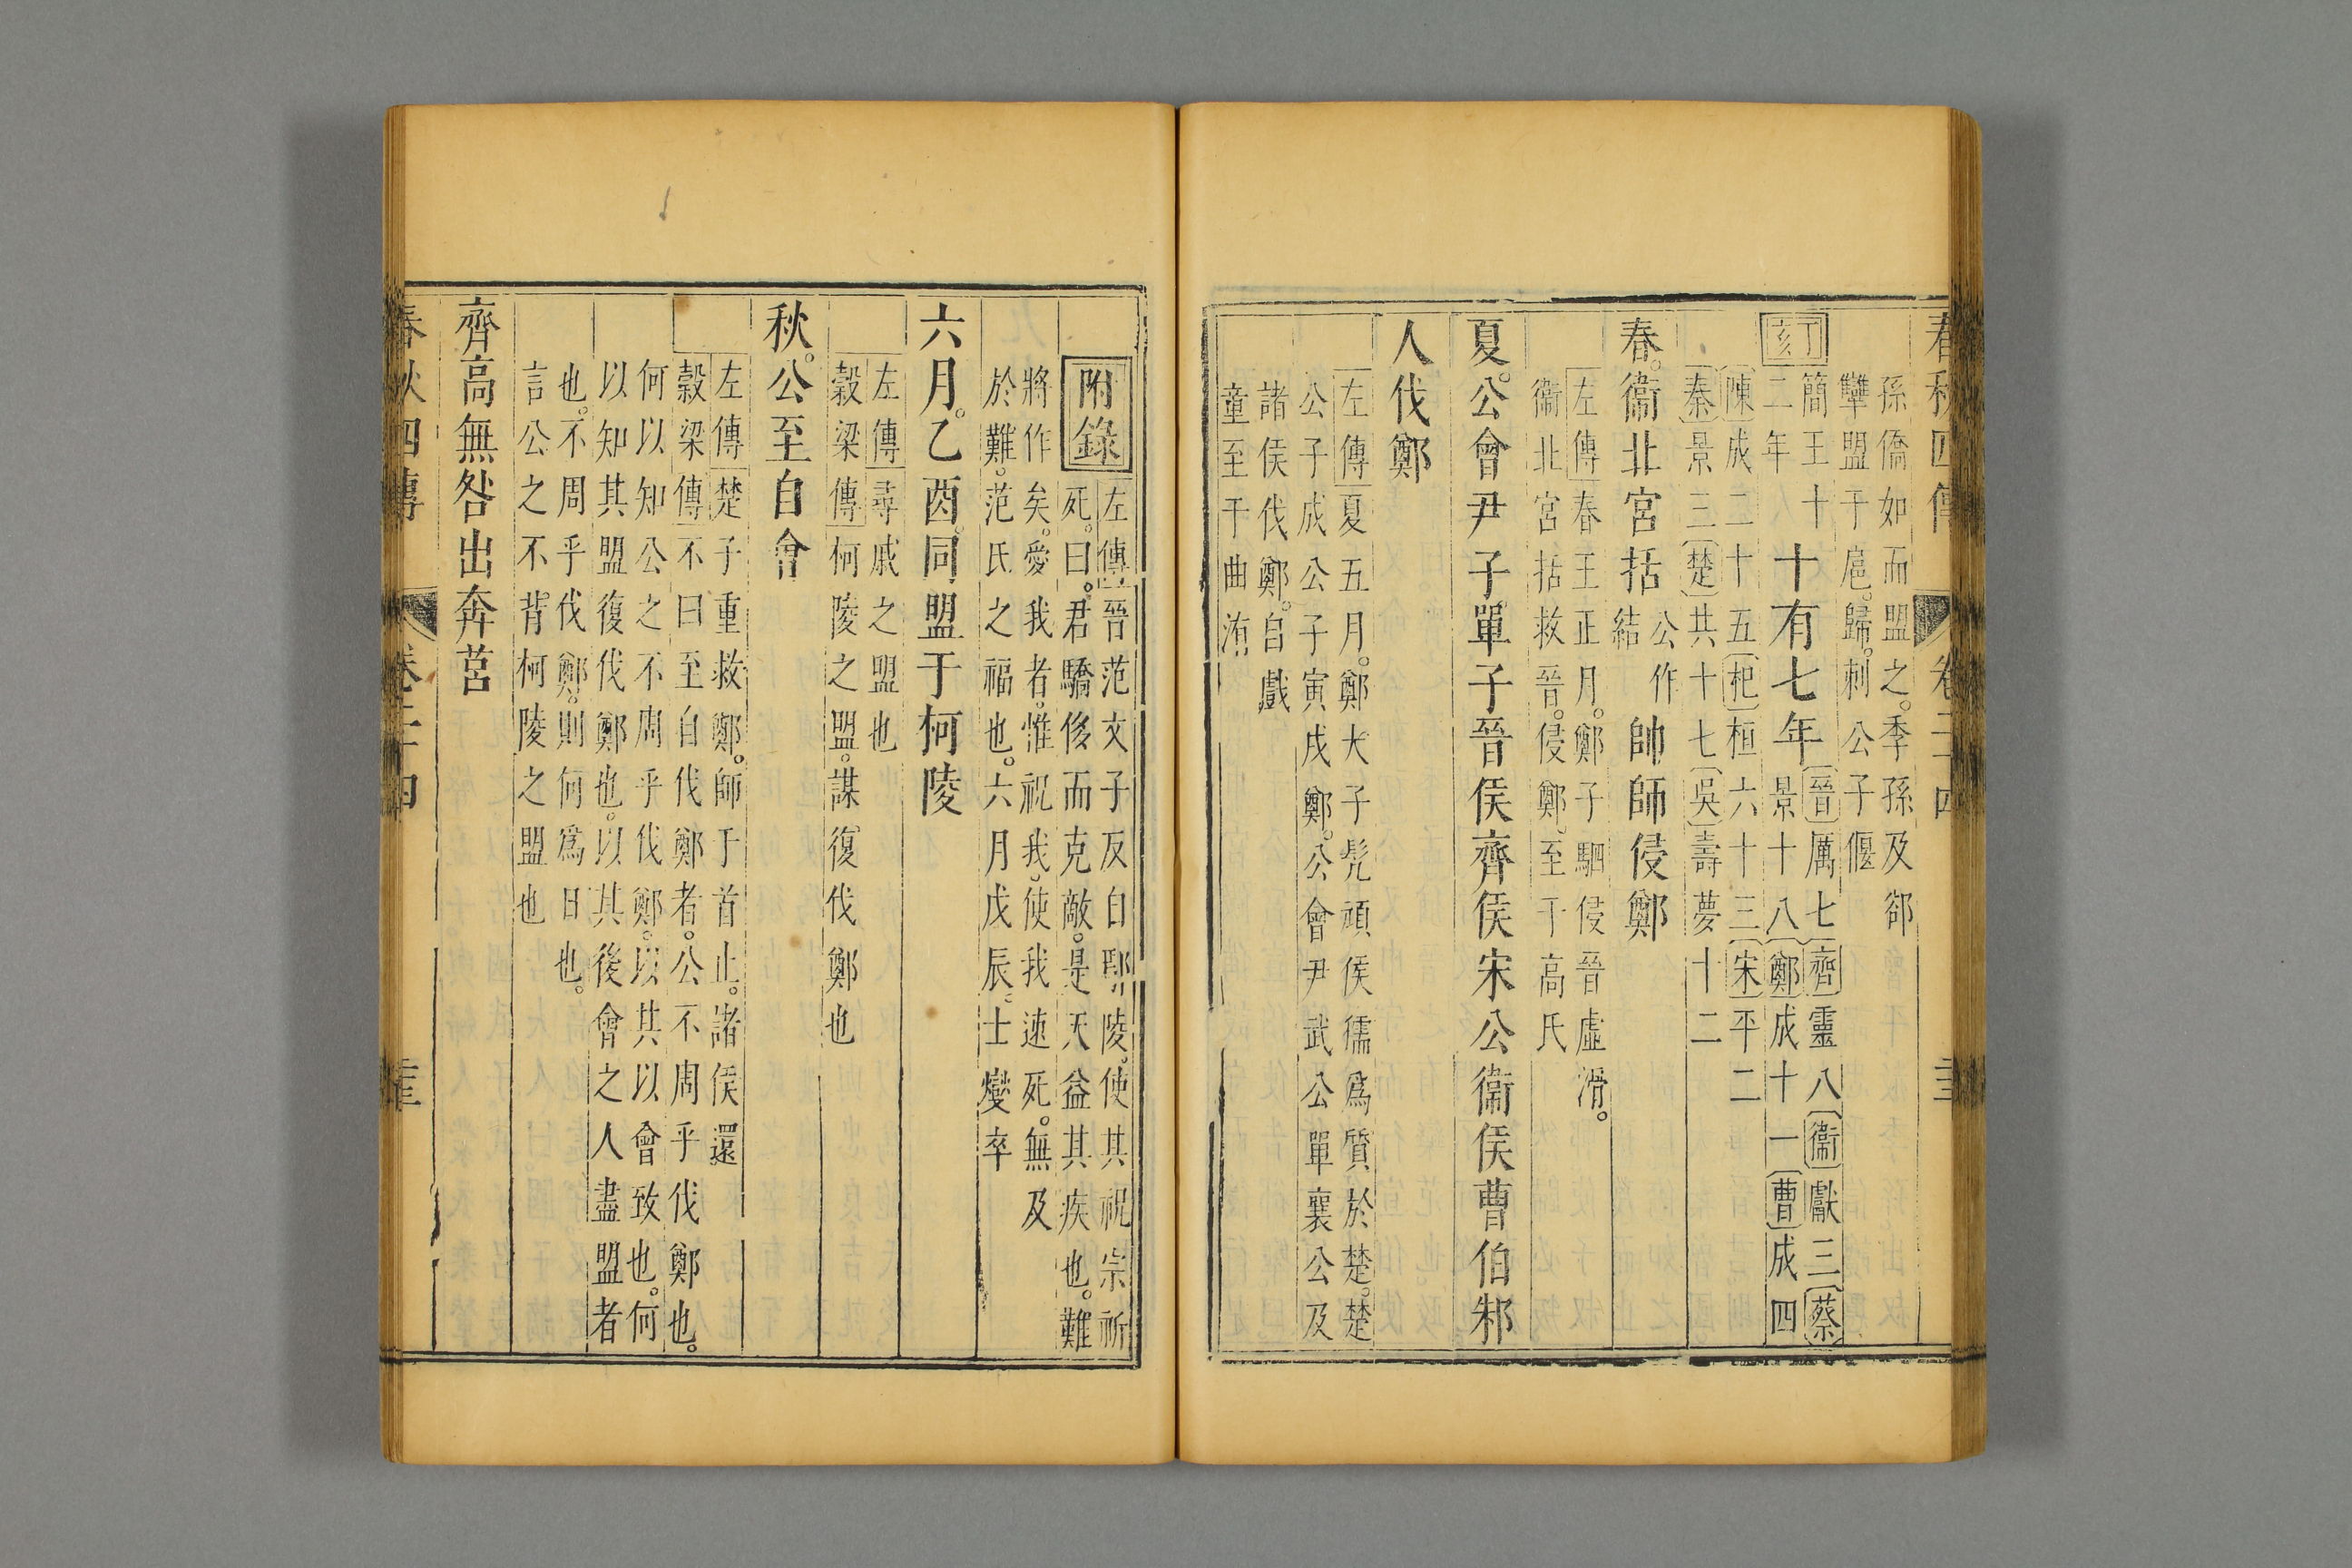 春秋四傳 卷二十四
孫僑如而盟之。季孫及郤
犫盟于扈。歸。刺公子偃
丁亥
簡王十
二年
十有七年
晉厲七齊靈八衞獻三蔡
景十八鄭成十一曹成四
陳成二十五杞桓六十三宋平二
秦景三楚共十七吳壽夢十二
春。衞北宮括公作結帥師侵鄭
左傳春王正月。鄭子駟侵晉虛滑。
衞北宮括救晉。侵鄭。至于高氏
夏。公會尹子單子晉侯齊侯宋公衞侯曹伯邾
人伐鄭
左傳夏五月。鄭大子髡頑侯獳爲質於楚。楚
公子成公子寅戍鄭。公會尹武公單襄公及
諸侯伐鄭。自戲
童至于曲洧
附錄
左傳晉范文子反自鄢陵。使其祝宗祈
死。曰。君驕侈而克敵。是天益其疾也。難
將作矣。愛我者。惟祝我。使我速死。無及
於難。范氏之福也。六月戊辰。士燮卒
六月。乙酉。同盟于柯陵
左傳尋戚之盟也
穀梁傳柯陵之盟。謀復伐鄭也
秋。公至自會
左傳楚子重救鄭。師于首止。諸侯還
穀梁傳不曰至自伐鄭者。公不周乎伐鄭也。
何以知公之不周乎伐鄭。以其以會致也。何
以知其盟復伐鄭也。以其後會之人盡盟者
也。不周乎伐鄭。則何爲日也。
言公之不背柯陵之盟也
齊高無咎出奔莒
春秋四傳 卷二十四